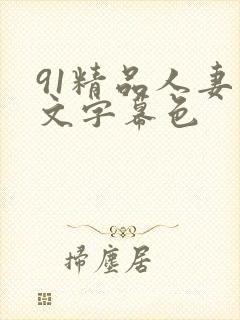 91精品人妻
文字幕色
掃塵居